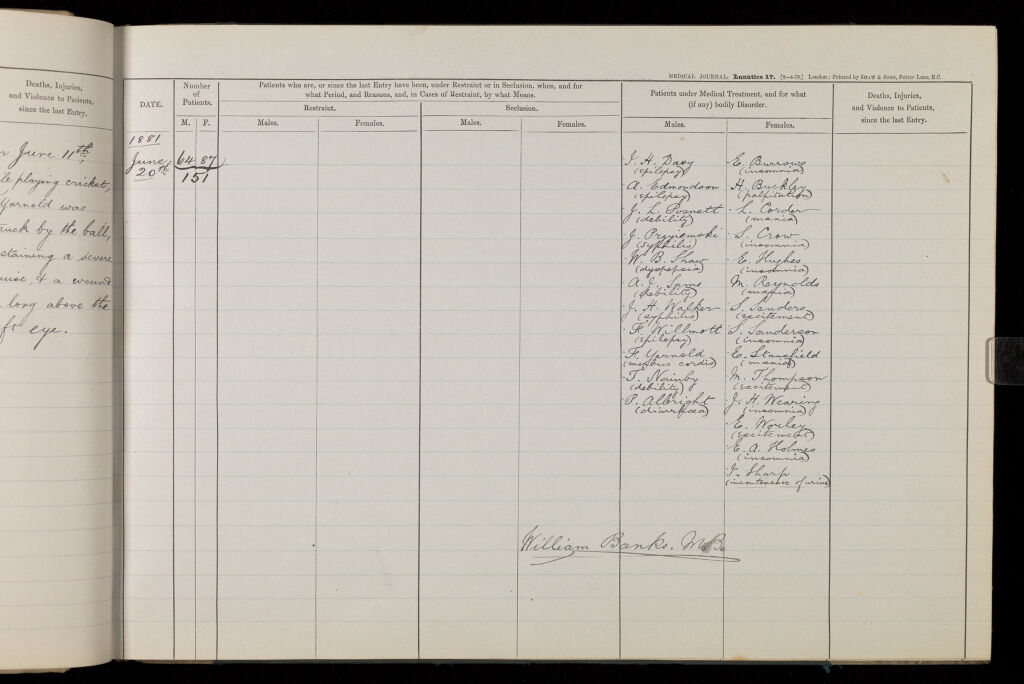 Deaths, Injuries,
and Violence to Patients,
since the last Entry.
June 11th,
playing cricket,
Yarnold was
by the ball,
a severe
& a wound
long above the
eye.
MEDICAL JOURNAL. Lunatics 17. [2—4-79.] London: Printed by SHAW & SONS, Fetter Lane, E.C.
DATE.
Number
of
Patients.
M. F.
Patients who are, or since the last Entry have been, under Restraint or in Seclusion, when, and for
what Period, and Reasons, and, in Cases of Restraint, by what Means.
Restraint.
Seclusion.
Males.
Females.
Males.
Females.
Patients under Medical Treatment, and for what
(if any) bodily Disorder.
Males.
Females.
Deaths, Injuries,
and Violence to Patients,
since the last Entry.
1881
June
20th
64 87
151
H. Davy
(epilepsy)
A. Edmondson
(epilepsy)
J. L. Posnett
(debility)
J. Przyiemski
(syphilis)
W. B. Shaw
(dyspepsia)
A. J. Syms
(debility)
J. H. Walker
(syphilis)
F. Willmott
(epilepsy)
F. Yarnold
(morbus cordis)
T. Nainby
(debility)
P. Albright
(diarrhœa)
E. Burrows
(insomnia)
H. Buckley
(palpitation)
L. Corder
(mania)
S. Crow
(insomnia)
E. Hughes
(insomnia)
M. Reynolds
(mania)
S. Sanders
(excitement)
S. Sanderson
(insomnia)
E. Stansfield
(mania)
M. Thompson
(excitement)
J. H. Wearing
(insomnia)
E. Worley
(excitement)
E. A. Holmes
(insomnia)
Sharp
(incontinence of urine)
William Banks. M.B.